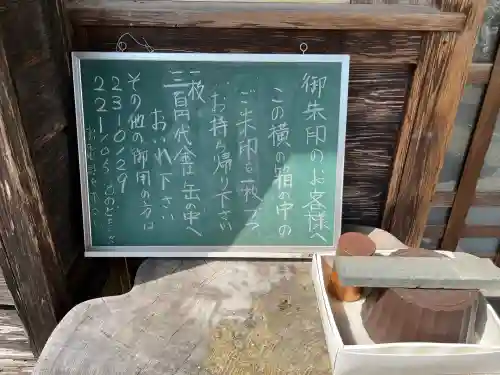 御朱印のお客様へ
この横の箱の中の
ご朱印を一枚づつ
お持ち帰り下さい
一枚
三百円代金は缶の中へ
おいれ下さい
その他の御用の方は
223-0129
221-1105